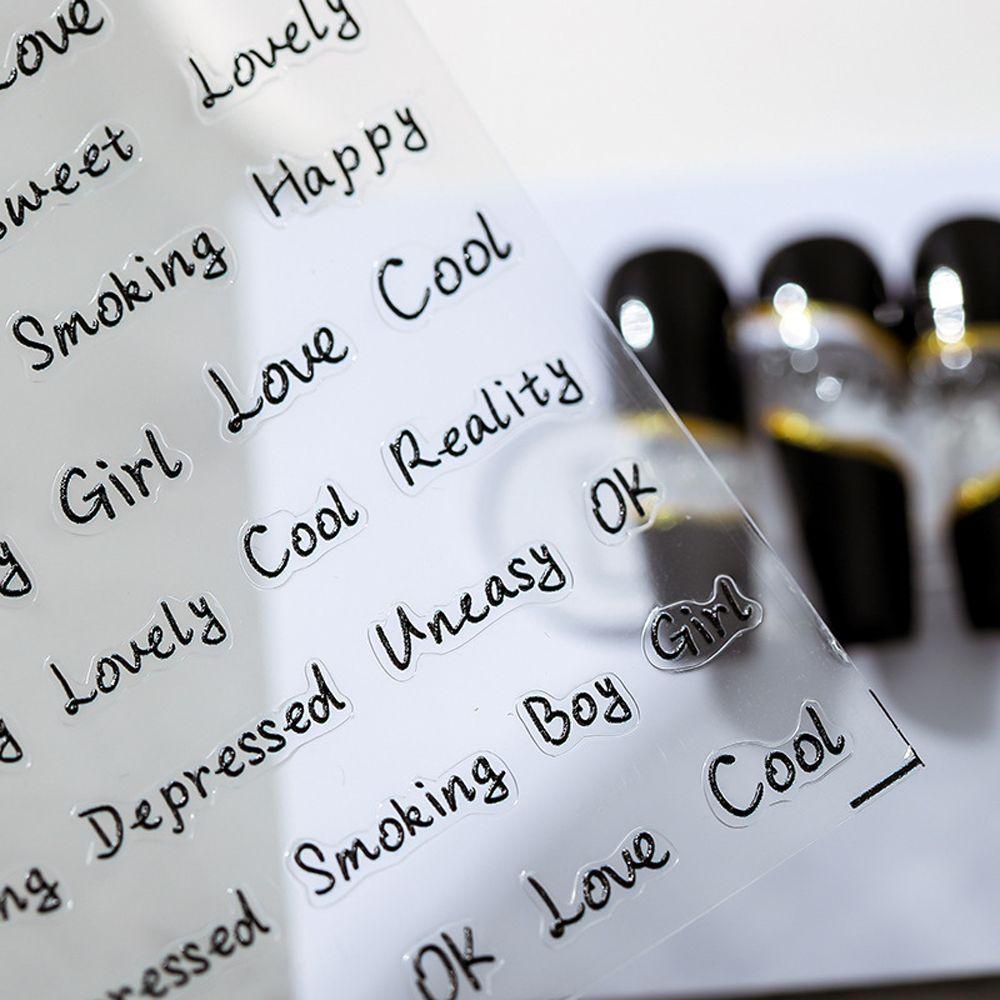 Love Lovely
Sweet Happy
Smoking Cool
Girl Love Reality
Cool OK
Lovely Uneasy Girl
Depressed Boy
Smoking Cool
Love
OK